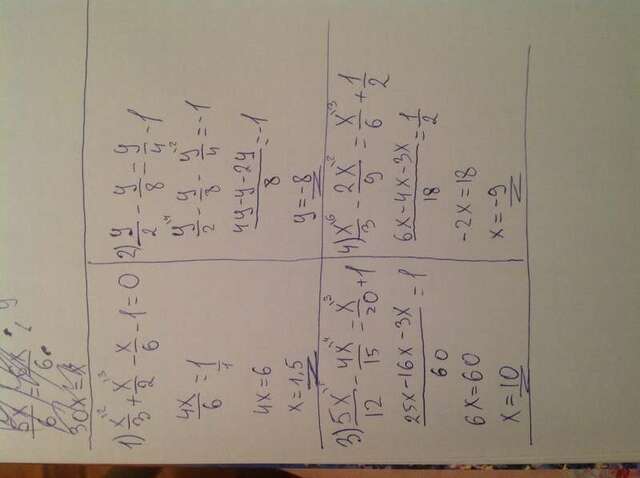 5x/6 = 5x/6
30x = x
1) x\2/3 + x\3/2 - x/6 - 1 = 0
4x/6 = 1/1
4x = 6
x = 1,5
2) y/2 - y/8 = y/4 - 1
y\4/2 - y/8 - y\2/4 = -1
4y-y-2y/8 = -1
y = -8
3) 5x\5/12 - 4x\4/15 = x\3/20 + 1
25x-16x-3x/60 = 1
6x = 60
x = 10
4) x\6/3 - 2x\2/9 = x\3/6 + 1/2
6x-4x-3x/18 = 1/2
-2x = 18
x = -9